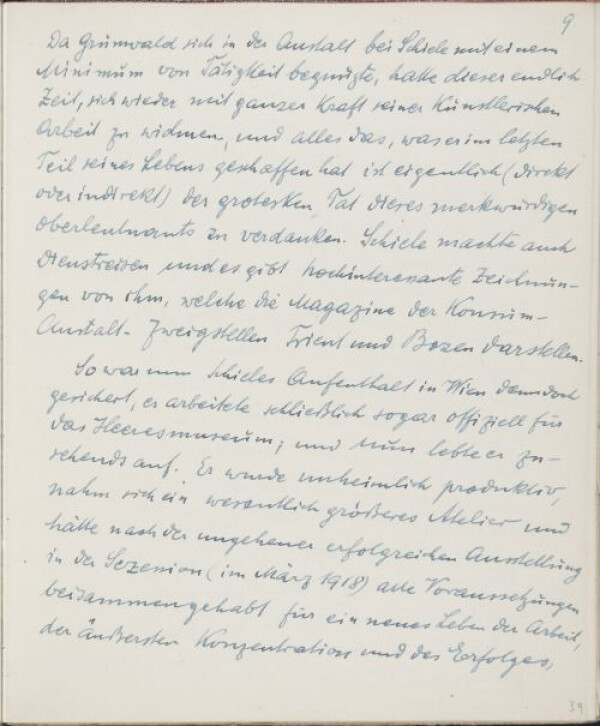 9
Da Grünwald sich in der Anstalt bei Schiele mit einem
Minimum von Tätigkeit begnügte, hatte dieser endlich
Zeit, sich wieder mit ganzer Kraft seiner künstlerischen
Arbeit zu widmen, und alles das, was er im letzten
Teil seines Lebens geschaffen hat ist eigentlich (direkt
oder indirekt) der grotesken Tat dieses merkwürdigen
Oberleutnants zu verdanken. Schiele machte auch
Dienstreisen und es gibt hochinteressante Zeichnun-
gen von ihm, welche die Magazine der Konsum-
Anstalt-Zweigstellen Trient und Bozen darstellen.
So war nun Schieles Aufenthalt in Wien denn doch
gesichert, er arbeitete schließlich sogar offiziell für
das Heeresmuseum; und nun lebte er zu-
sehends auf. Er wurde unheimlich produktiv,
nahm sich ein wesentlich größeres Atelier und
hätte nach der ungeheuer erfolgreichen Ausstellung
in der Sezession (im März 1918) alle Voraussetzungen
beisammengehabt für ein neues Leben der Arbeit,
der äußersten Konzentration und des Erfolges,
39